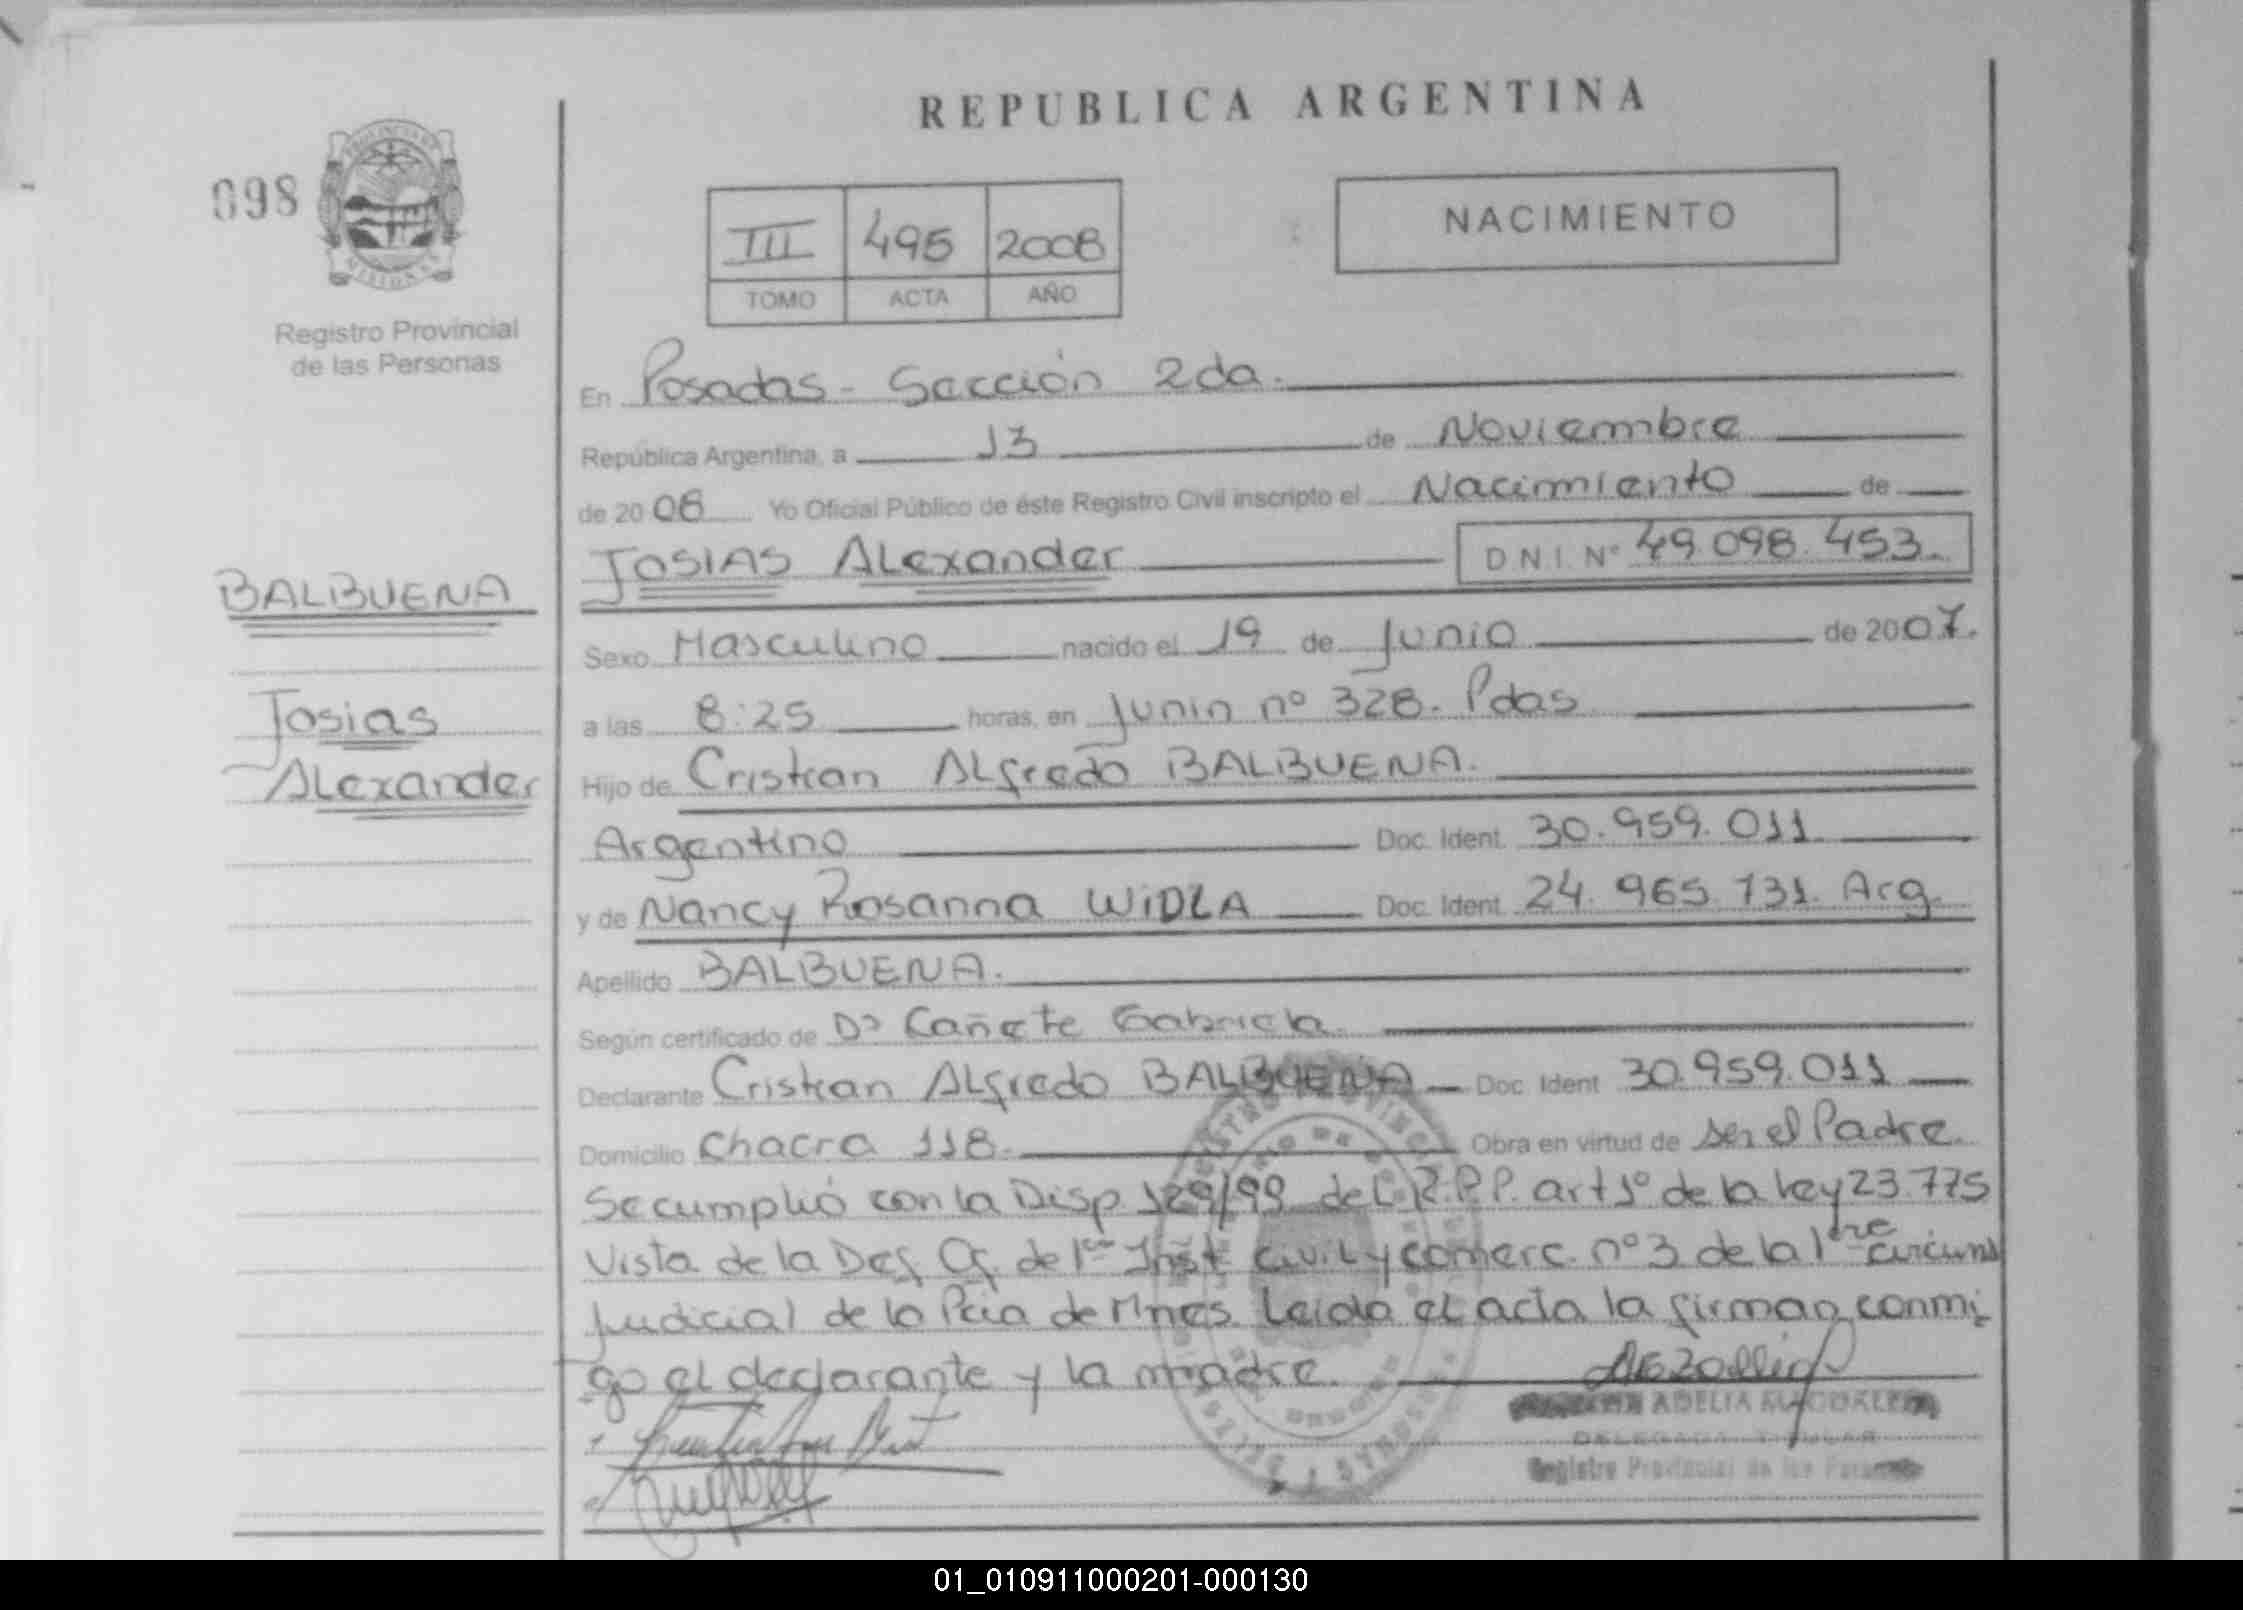 REPUBLICA ARGENTINA
098
PROVINCIA DE
MISIONES
Registro Provincial
de las Personas
III 495 2008
TOMO ACTA AÑO
NACIMIENTO
En Posadas - Sección 2da.
República Argentina, a 13 de Noviembre
de 2008 Yo Oficial Público de éste Registro Civil inscripto el Nacimiento de
JOSIAS ALexander D N I. Nº 49.098.453.
BALBUENA
Sexo Masculino nacido el 19 de Junio de 2007.
Josias
a las 8:25 horas, en Junin nº 328. Pdas
ALexander
Hijo de Cristian ALfredo BALBUENA.
Argentino Doc. Ident. 30.959.011
y de Nancy Rosanna WiDLA Doc. Ident. 24.965.731. Arg.
Apellido BALBUENA.
Según certificado de Dª Cañete Gabriela.
Declarante Cristian ALfredo BALBUENA Doc. Ident 30.959.011
Domicilio Chacra 118. Obra en virtud de ser el Padre.
Se cumplió con la Disp 129/99 del R.P.P. art 1º de la ley 23.775
Vista de la Def. Of. de 1ra Inst Civil y comerc. nº 3 de la 1re circuns
Judicial de la Pcia de Mnes. Leida el acta la firman conmi
go el declarante y la madre.
ADELIA MAGDALENA
DELEGADA TITULAR
Registro Provincial de las Personas
01_010911000201-000130